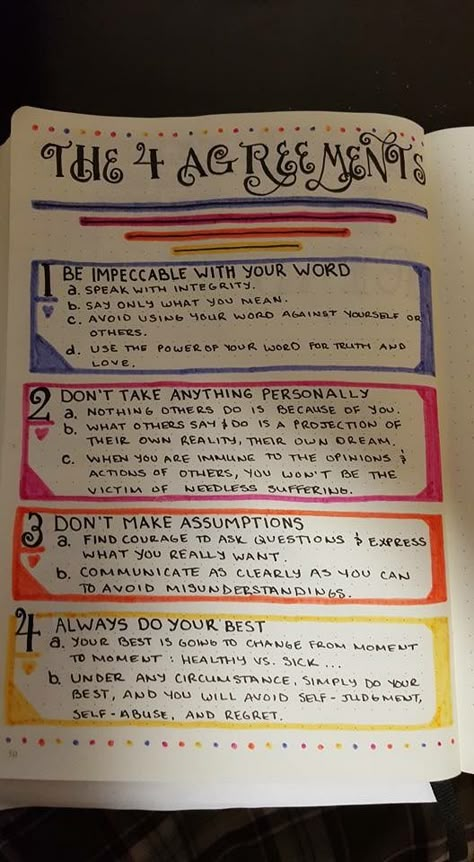 THE 4 AGREEMENTS
1 BE IMPECCABLE WITH YOUR WORD
a. SPEAK WITH INTEGRITY.
b. SAY ONLY WHAT YOU MEAN.
c. AVOID USING YOUR WORD AGAINST YOURSELF OR
OTHERS.
d. USE THE POWER OF YOUR WORD FOR TRUTH AND
LOVE.
2 DON'T TAKE ANYTHING PERSONALLY
a. NOTHING OTHERS DO IS BECAUSE OF YOU.
b. WHAT OTHERS SAY & DO IS A PROJECTION OF
THEIR OWN REALITY, THEIR OWN DREAM.
c. WHEN YOU ARE IMMUNE TO THE OPINIONS &
ACTIONS OF OTHERS, YOU WON'T BE THE
VICTIM OF NEEDLESS SUFFERING.
3 DON'T MAKE ASSUMPTIONS
a. FIND COURAGE TO ASK QUESTIONS & EXPRESS
WHAT YOU REALLY WANT.
b. COMMUNICATE AS CLEARLY AS YOU CAN
TO AVOID MISUNDERSTANDINGS.
4 ALWAYS DO YOUR BEST
a. YOUR BEST IS GOING TO CHANGE FROM MOMENT
TO MOMENT : HEALTHY VS. SICK...
b. UNDER ANY CIRCUMSTANCE, SIMPLY DO YOUR
BEST, AND YOU WILL AVOID SELF-JUDGMENT,
SELF-ABUSE, AND REGRET.